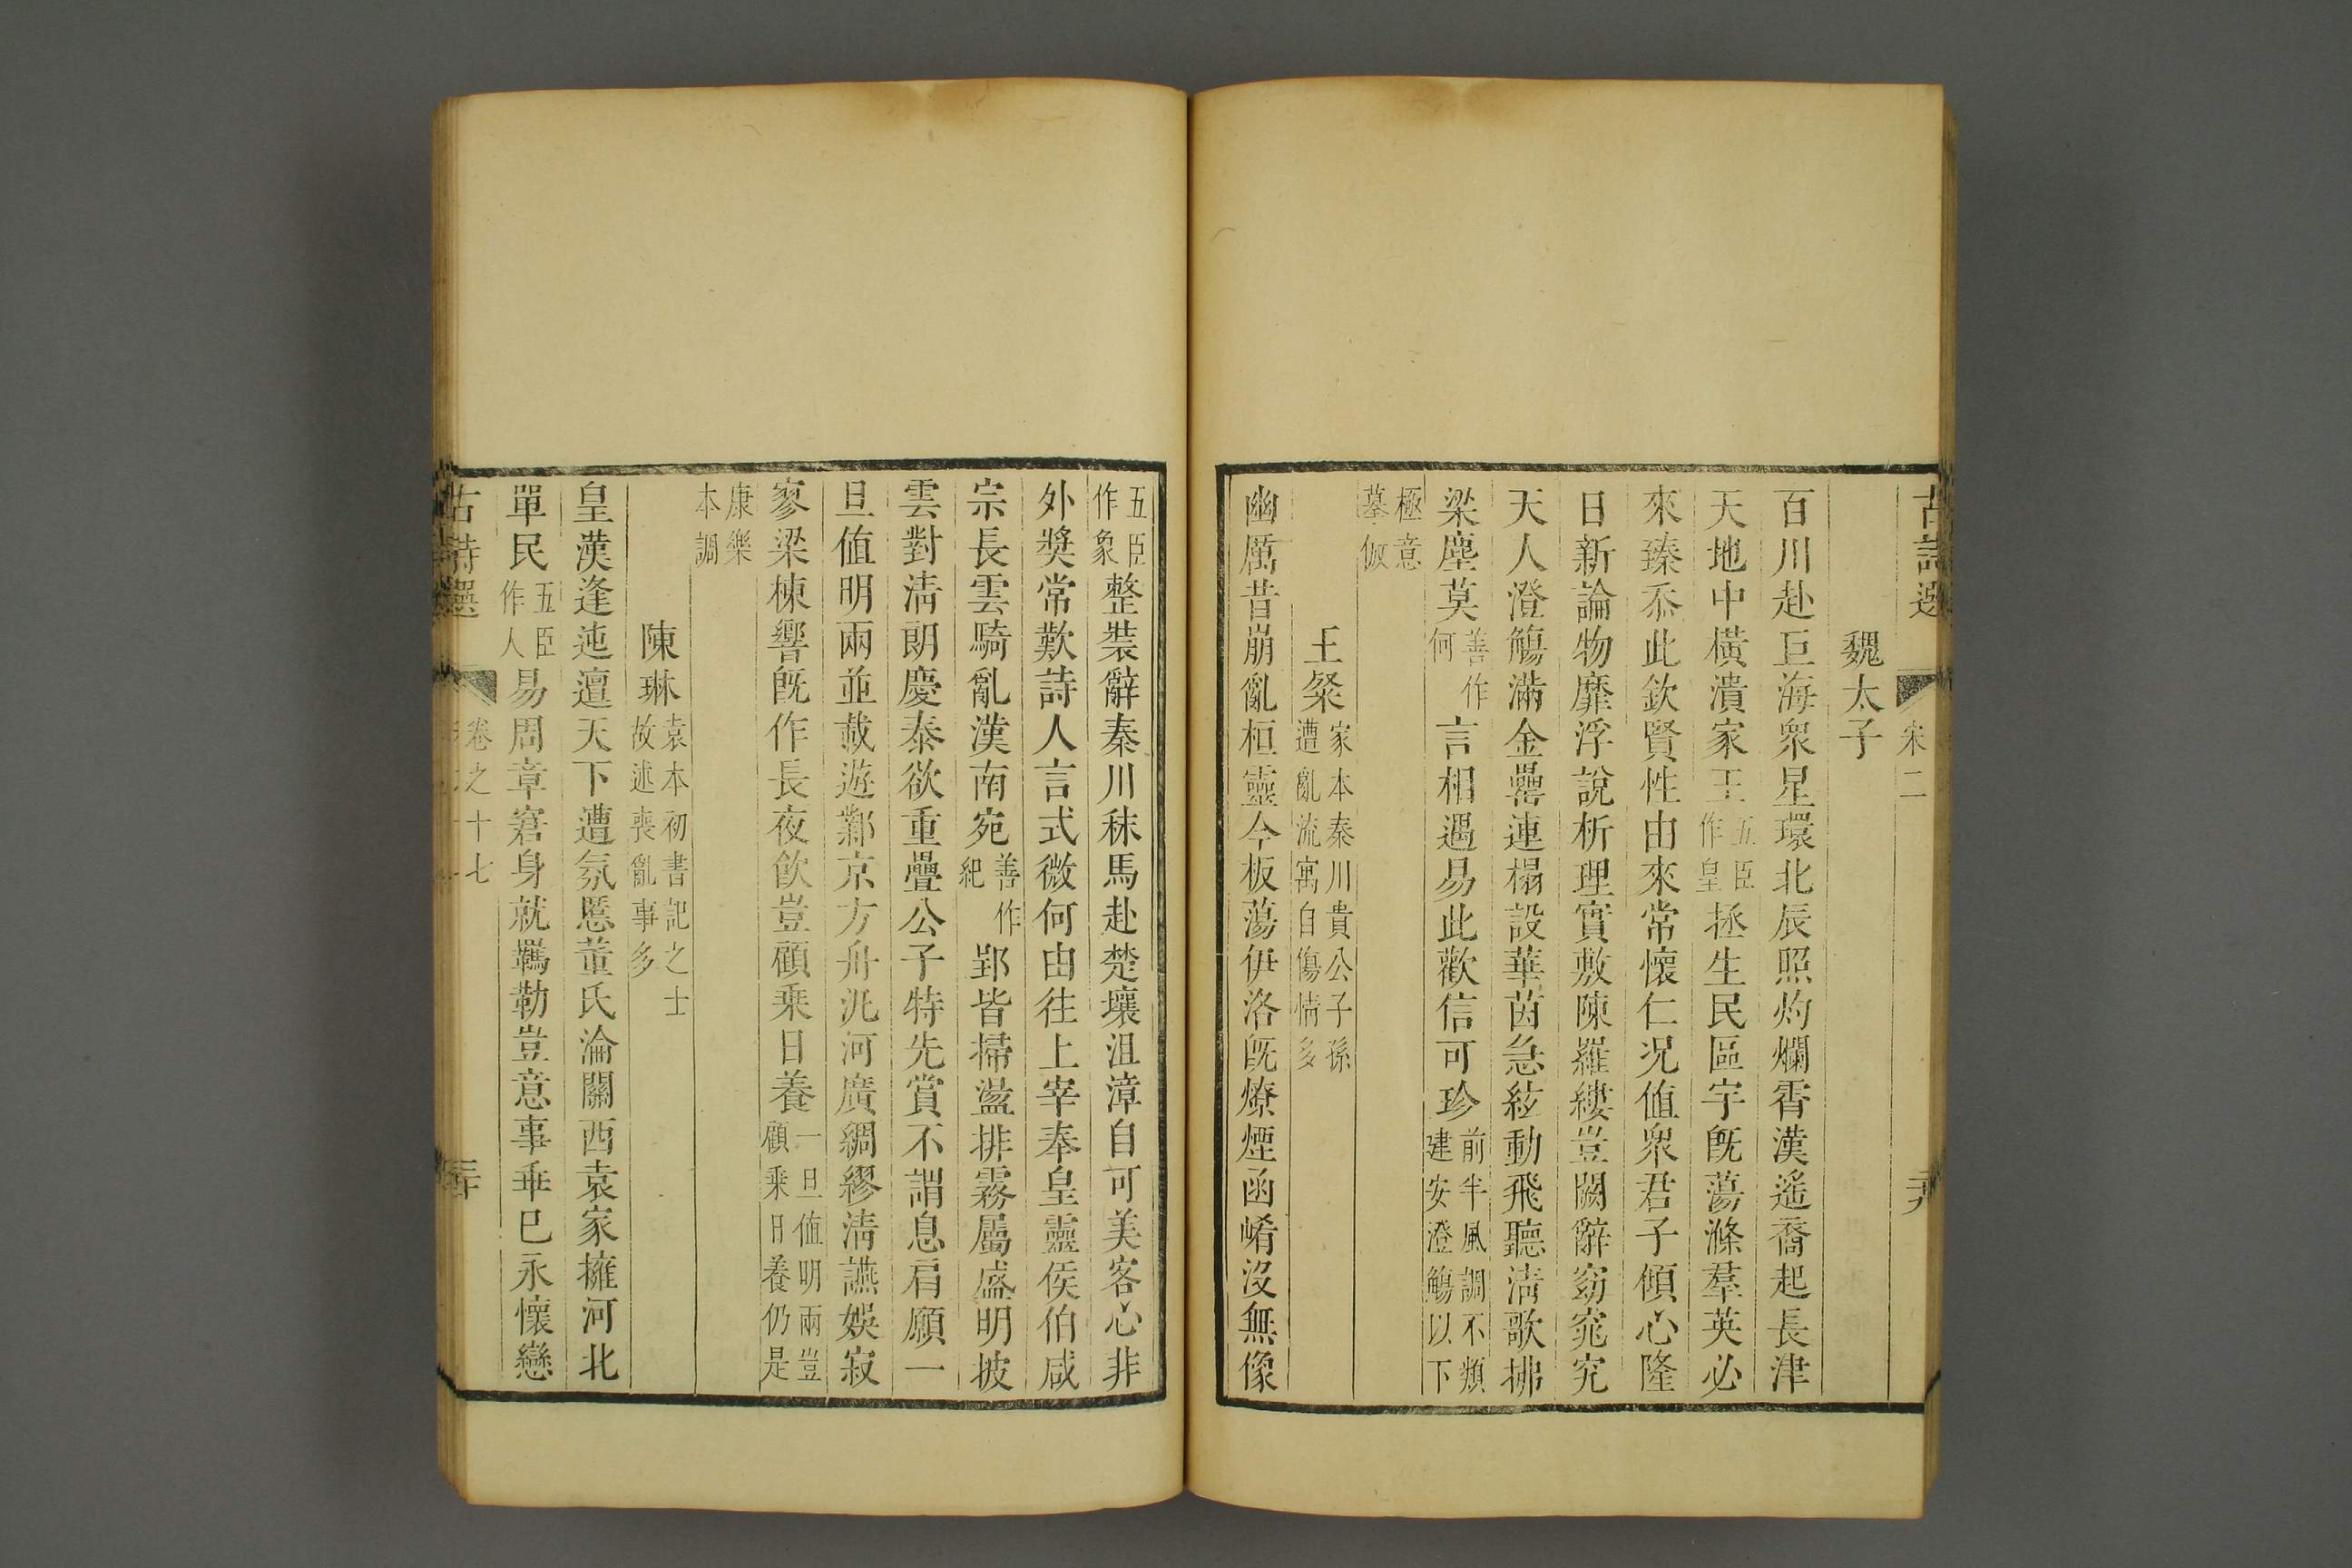 古詩選 宋二 尤
魏太子
百川赴巨海衆星環北辰照灼爛霄漢遙裔起長津
天地中橫潰家王五臣作皇拯生民區宇旣蕩滌羣英必
來臻忝此欽賢性由來常懷仁況值衆君子傾心隆
日新論物靡浮說析理實敷陳羅縷豈闕辭窈窕究
天人澄觴滿金罍連榻設華茵急絃動飛聽淸歌拂
梁塵莫善作何言相遇易此歡信可珍前半風調不類建安澄觴以下
極意摹倣
王粲家本秦川貴公子孫遭亂流寓自傷情多
幽厲昔崩亂桓靈今板蕩伊洛旣燎煙函崤沒無像
五臣作象整裝辭秦川秣馬赴楚壤沮漳自可美客心非
外獎常歎詩人言式微何由往上宰奉皇靈侯伯咸
宗長雲騎亂漢南宛善作紀郢皆掃盪排霧屬盛明披
雲對淸朗慶泰欲重疊公子特先賞不謂息肩願一
旦值明兩並載遊鄴京方舟汎河廣綢繆淸讌娛寂
寥梁棟響旣作長夜飮豈顧乗日養一旦値明兩豈顧乗日養仍是
康樂本調
陳琳袁本初書記之士故述喪亂事多
皇漢逢迍邅天下遭氛慝董氏淪關西袁家擁河北
單民五臣作人易周章窘身就羈勒豈意事乖已永懷戀
古詩選 卷之十七